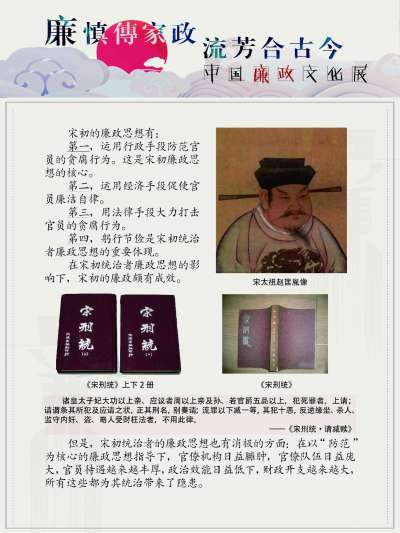 廉慎傳家政
流芳合古今
中国廉政文化展
宋初的廉政思想有：
第一，运用行政手段防范官
员的贪腐行为。这是宋初廉政思
想的核心。
第二，运用经济手段促使官
员廉洁自律。
第三，用法律手段大力打击
官员的贪腐行为。
第四，躬行节俭是宋初统治
者廉政思想的重要体现。
在宋初统治者廉政思想的影
响下，宋初的廉政颇有成效。
宋太祖赵匡胤像
宋刑統
宋刑統
《宋刑统》上下2册
《宋刑统》
诸皇太子妃大功以上亲、应议者周以上亲及孙、若官爵五品以上，犯死罪者，上请；
请谓条其所犯及应请之状，正其刑名，别奏请；流罪以下减一等，其犯十恶，反逆缘坐、杀人、
监守内奸、盗、略人受财枉法者，不用此律。
——《宋刑统·请减赎》
但是，宋初统治者的廉政思想也有消极的方面：在以“防范”
为核心的廉政思想指导下，官僚机构日益臃肿，官僚队伍日益庞
大，官员待遇越来越丰厚，政治效能日益低下，财政开支越来越大，
所有这些都为其统治带来了隐患。